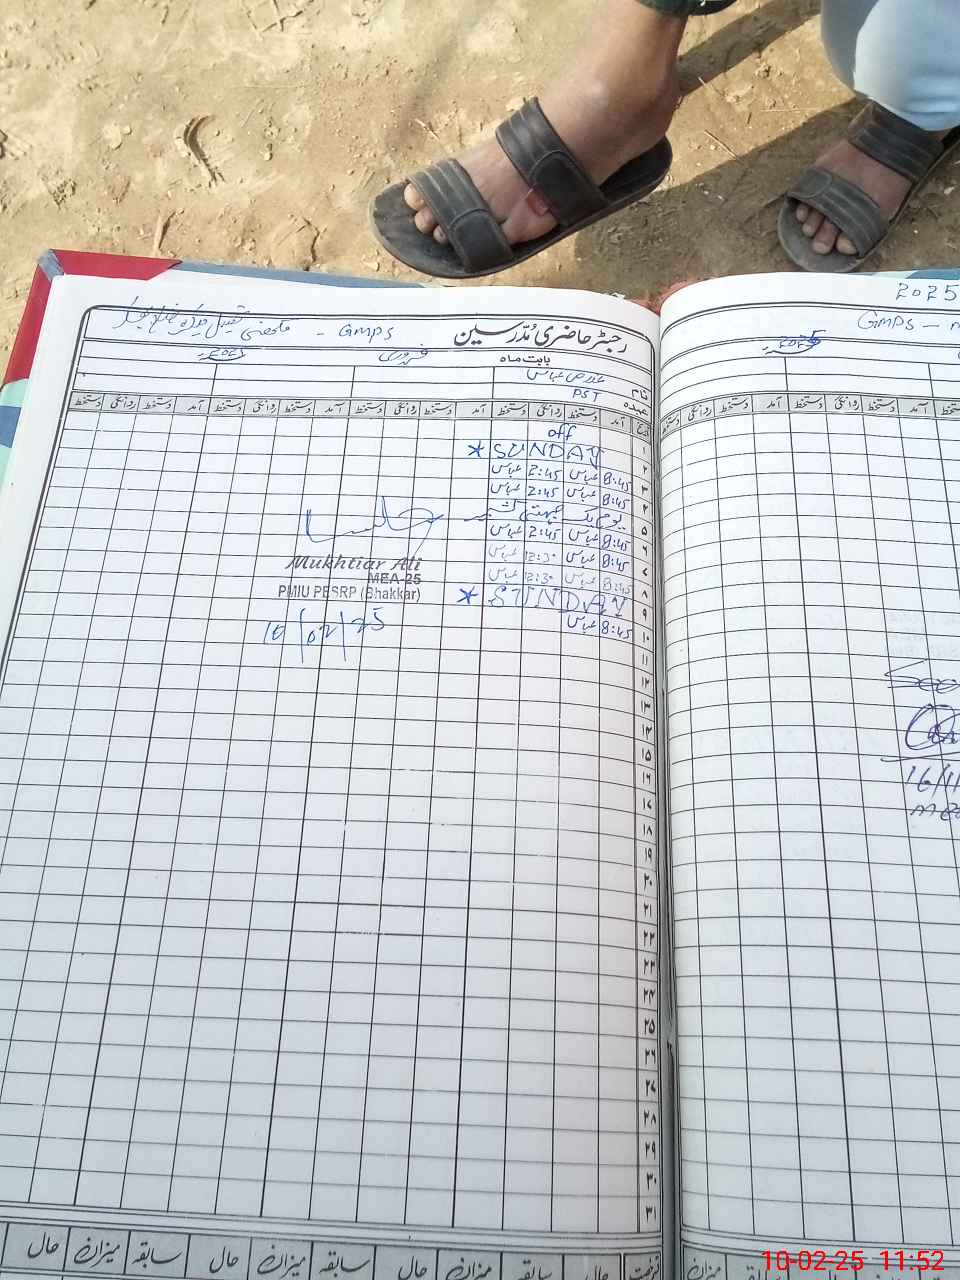 2025
GMPS -
رجسٹر حاضری مُدّرسین GMPS -
بابت ماہ فروری 2025
نام عباس
عہدہ PST
تاریخ آمد دستخط روانگی دستخط آمد دستخط روانگی دستخط آمد دستخط روانگی دستخط آمد دستخط روانگی دستخط
۱ off
۲ SUNDAY *
۳ 8:45 عباس 2:45 عباس
۴ 8:45 عباس 2:45 عباس
۵ یوم یک جہتی کشمیر
۶ 8:45 عباس 2:45 عباس
۷ 8:45 عباس 12:30 عباس
۸ 8:45 عباس 12:30 عباس
۹ SUNDAY *
۱۰ 8:45 عباس
Mukhtiar Ali
MEA-25
PMIU PESRP (Bhakkar)
10/02/25
۱۱
۱۲
۱۳
۱۴
۱۵
۱۶
۱۷
۱۸
۱۹
۲۰
۲۱
۲۲
۲۳
۲۴
۲۵
۲۶
۲۷
۲۸
۲۹
۳۰
۳۱
حال سابقہ میزان حال سابقہ میزان حال سابقہ میزان حال
16/11
10-02-25 11:52